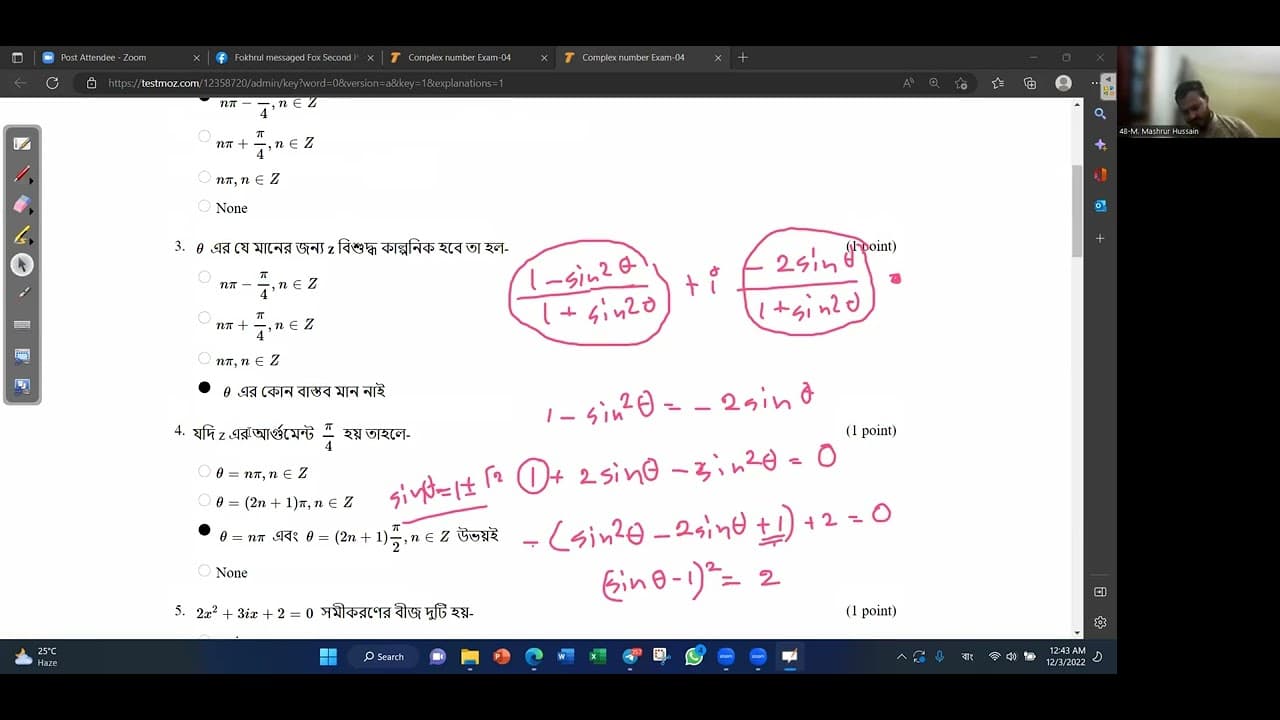 Post Attendee - Zoom
Fokhrul messaged Fox Second
Complex number Exam-04
Complex number Exam-04
https://testmoz.com/12358720/admin/key?word=0&version=a&key=1&explanations=1
48-M. Mashrur Hussain
nπ − π/4, n ∈ Z
nπ + π/4, n ∈ Z
nπ, n ∈ Z
None
3. θ এর যে মানের জন্য z বিশুদ্ধ কাল্পনিক হবে তা হল- (1 point)
nπ − π/4, n ∈ Z
nπ + π/4, n ∈ Z
nπ, n ∈ Z
θ এর কোন বাস্তব মান নাই
4. যদি z এর আর্গুমেন্ট π/4 হয় তাহলে- (1 point)
θ = nπ, n ∈ Z
θ = (2n + 1)π, n ∈ Z
θ = nπ এবং θ = (2n + 1)π/2, n ∈ Z উভয়ই
None
5. 2x² + 3ix + 2 = 0 সমীকরণের বীজ দুটি হয়- (1 point)
1 - sin²θ / 1 + sin²θ + i - 2 sin θ / 1 + sin²θ
1 - sin²θ = - 2 sin θ
sinθ = 1 ± √2
1 + 2 sinθ - sin²θ = 0
- (sin²θ - 2 sinθ + 1) + 2 = 0
(sin θ - 1)² = 2
25°C
Haze
Search
বাং
12:43 AM
12/3/2022